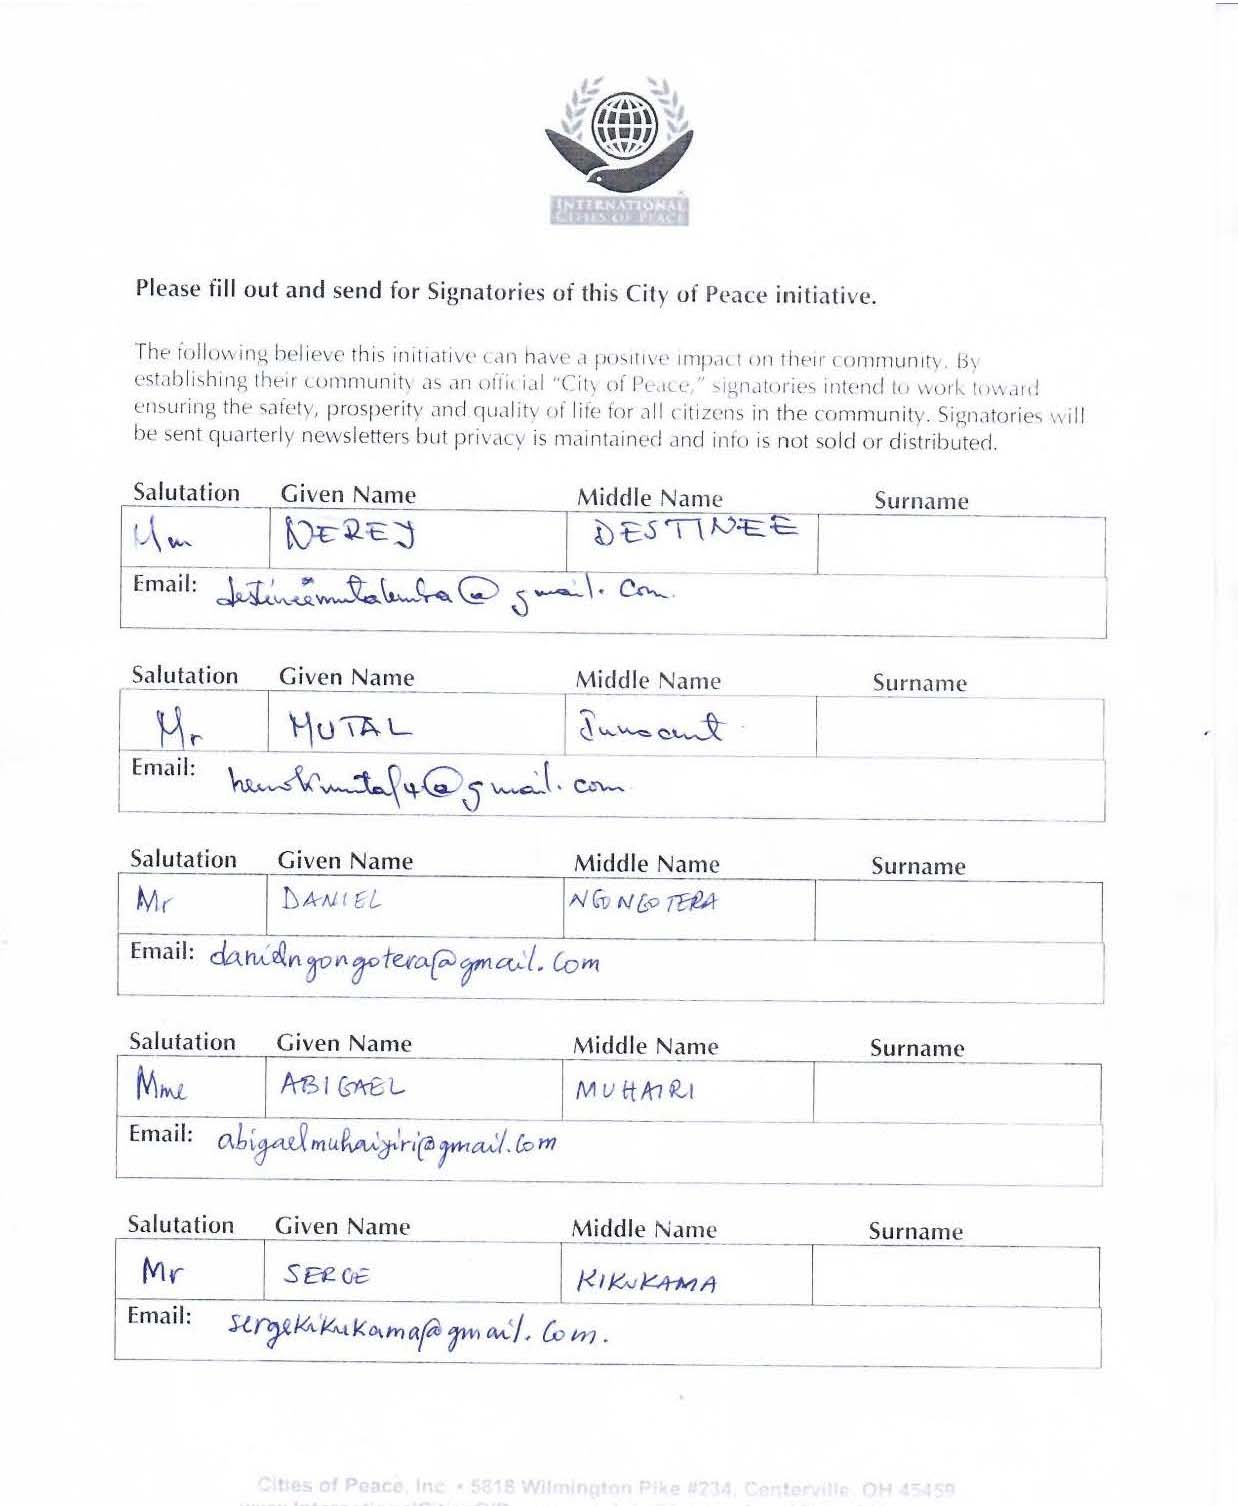 INTERNATIONAL
CITIES OF PEACE
Please fill out and send for Signatories of this City of Peace initiative.
The following believe this initiative can have a positive impact on their community. By
establishing their community as an official "City of Peace," signatories intend to work toward
ensuring the safety, prosperity and quality of life for all citizens in the community. Signatories will
be sent quarterly newsletters but privacy is maintained and info is not sold or distributed.
Salutation Given Name Middle Name Surname
NEREJ DESTINEE
Email: destinéemutalemba@gmail.com.
Salutation Given Name Middle Name Surname
Mr MUTAL Innocent
Email: @gmail.com
Salutation Given Name Middle Name Surname
Mr DANIEL NGONGOTERA
Email: danielngongotera@gmail.com
Salutation Given Name Middle Name Surname
Mme ABIGAEL MUHAIRI
Email: abigaelmuhaiyiri@gmail.com
Salutation Given Name Middle Name Surname
Mr SERGE KIKUKAMA
Email: sergekikukama@gmail.com.
Cities of Peace, Inc • 5818 Wilmington Pike #234, Centerville, OH 45459